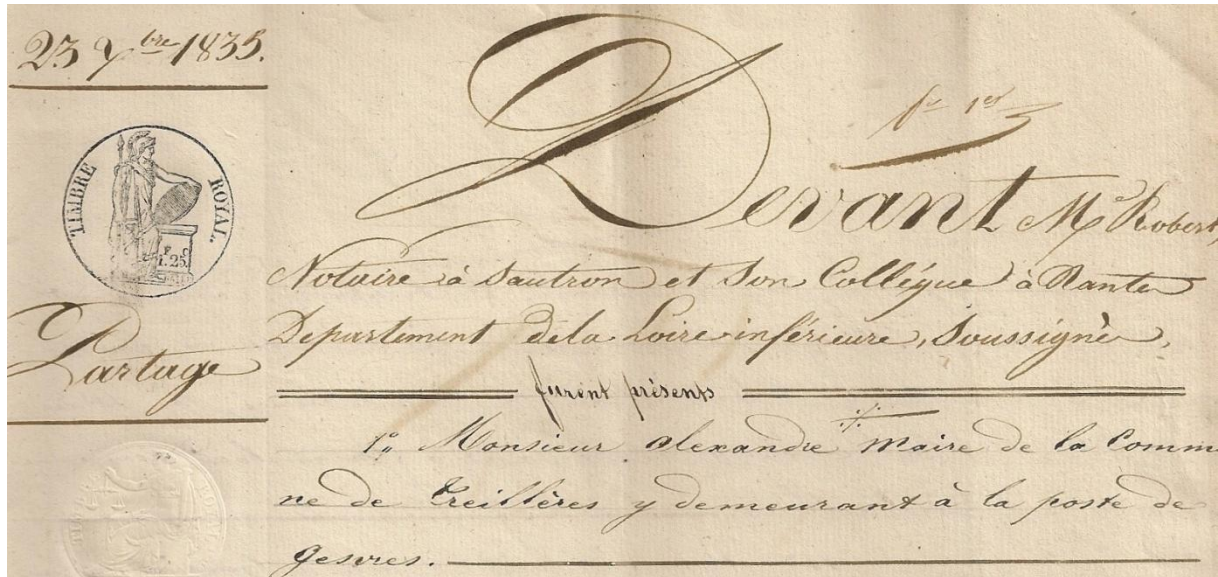 23 7bre 1835.
TIMBRE ROYAL.
1.25.
Partage
fo 1er
Devant Me Robert,
Notaire à Sautron et Son Collégue à Nantes
Département de la Loire inférieure, Soussignés,
furent présents
1o Monsieur Alexandre Maire de la Commu
ne de Treillères y demeurant à la poste de
Gesvres.